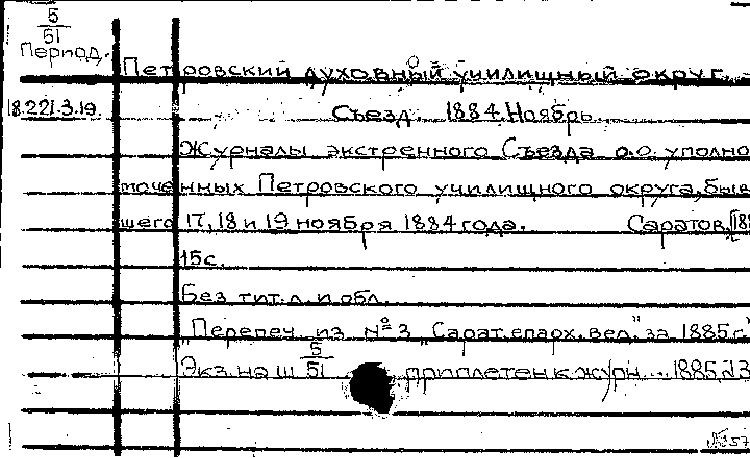 5
51
Период.
Петровский духовный училищный округ.
18.221.3.19. Съезд. 1884. Ноябрь.
Журналы экстренного Съезда о.о. уполно
моченных Петровского училищного округа, быв
шего 17, 18 и 19 ноября 1884 года. Саратов, [188
15 с.
Без тит. л. и обл.
Перепеч. из № 3 „Сарат. епарх. вед." за 1885 г.
Экз. на ш 5/51 приплетен к журн. 1885
57